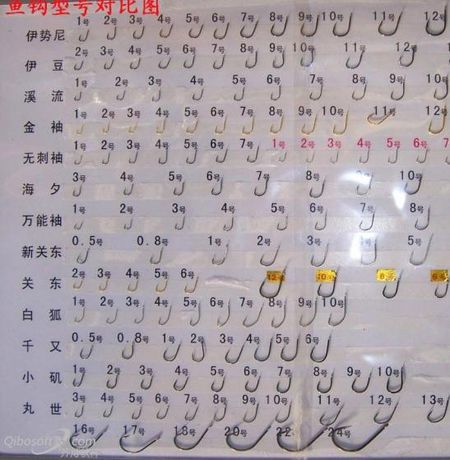 鱼钩型号对比图
伊势尼 1号 2号 3号 4号 5号 6号 7号 8号 9号 10号 11号 12号
伊豆 2号 3号 4号 5号 6号 7号 8号 9号 10号
溪流 1号 2号 3号 4号 5号 6号 7号 8号 9号 10号
金袖 1号 2号 3号 4号 5号 6号 7号 8号 9号 10号 11号 12号
无刺袖 1号 2号 3号 4号 5号 6号 7号 1号 2号 3号 4号 5号 6号 7
海夕 3号 4号 5号 6号 7号 8号 9号 10号
万能袖 1号 2号 3号 4号 5号 6号 7号 8号
新关东 0.5号 0.8号 1号 2号 3号 4号 5号
关东 2号 3号 4号 5号 6号
白狐 1号 2号 3号 4号 5号 6号 7号 8号 9号 10号
千又 0.5号 0.8号 1号 2号 3号 4号 5号 6号
小矶 1号 2号 3号 4号 5号 6号 7号 8号 9号 10号
丸世 3号 4号 5号 6号 7号 8号 9号 10号 11号 12号 13号
16号 17号 18号 20号 22号 24号
Qibosoft .com